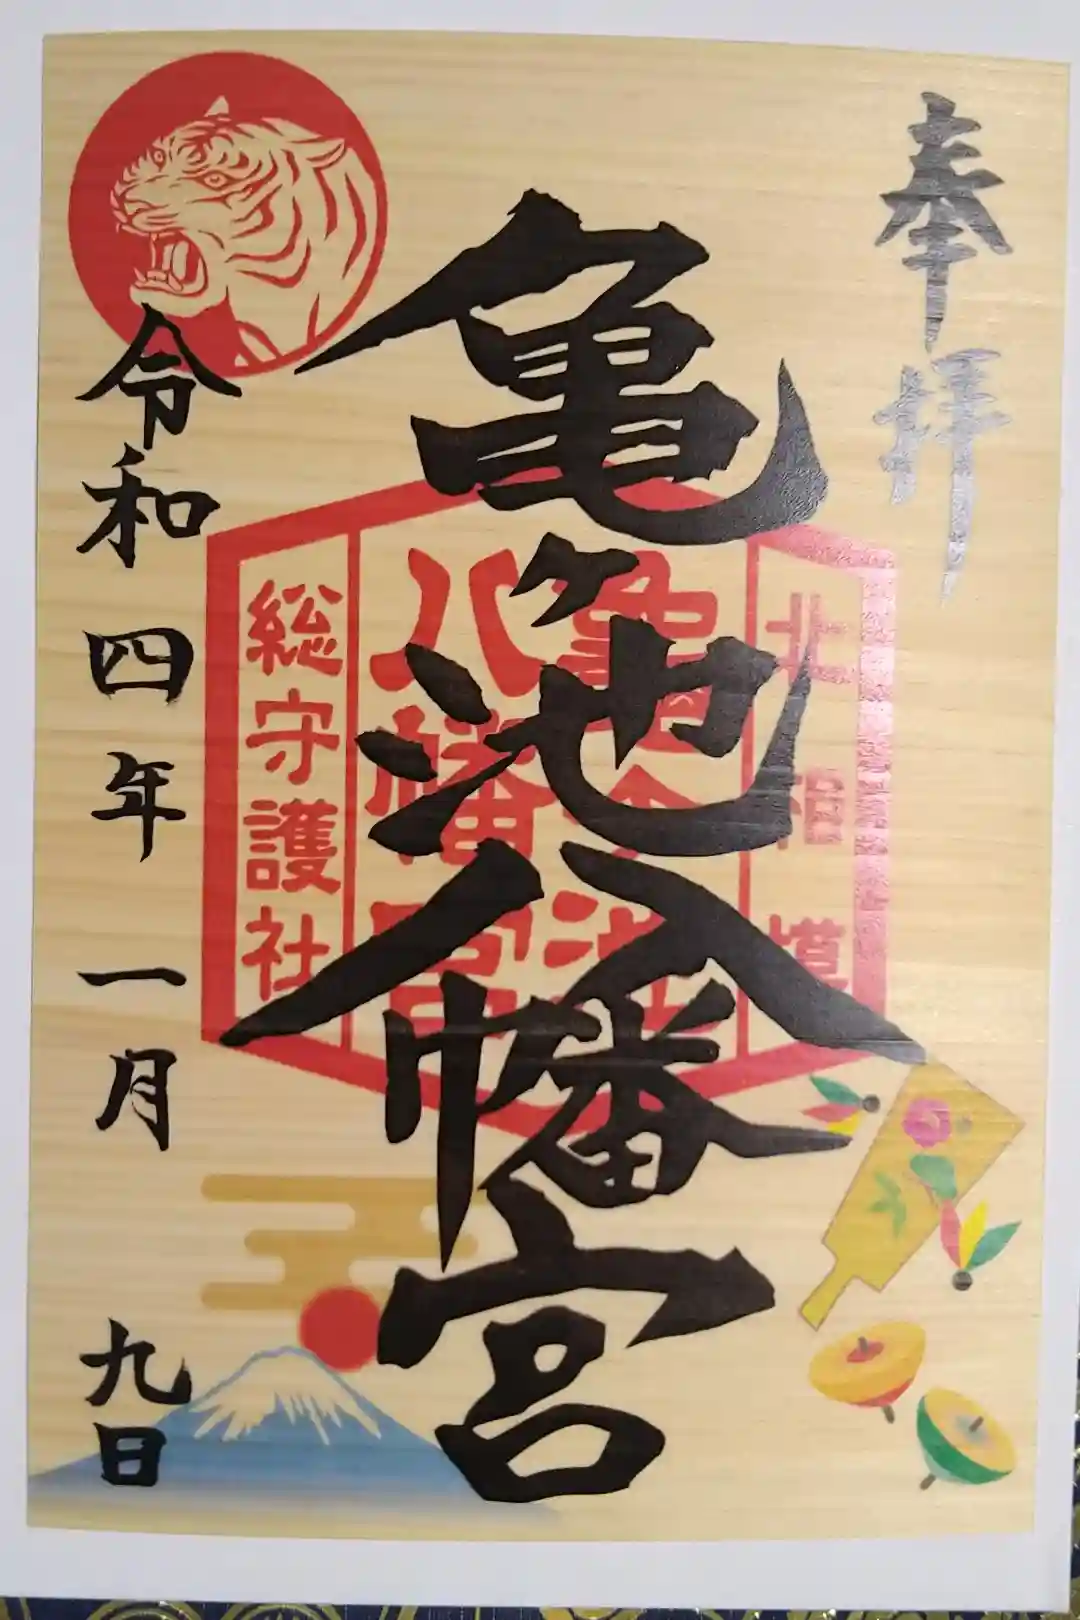 奉拝
北相模
亀ヶ池
八幡宮
総守護社
亀ヶ池八幡宮
令和四年一月九日